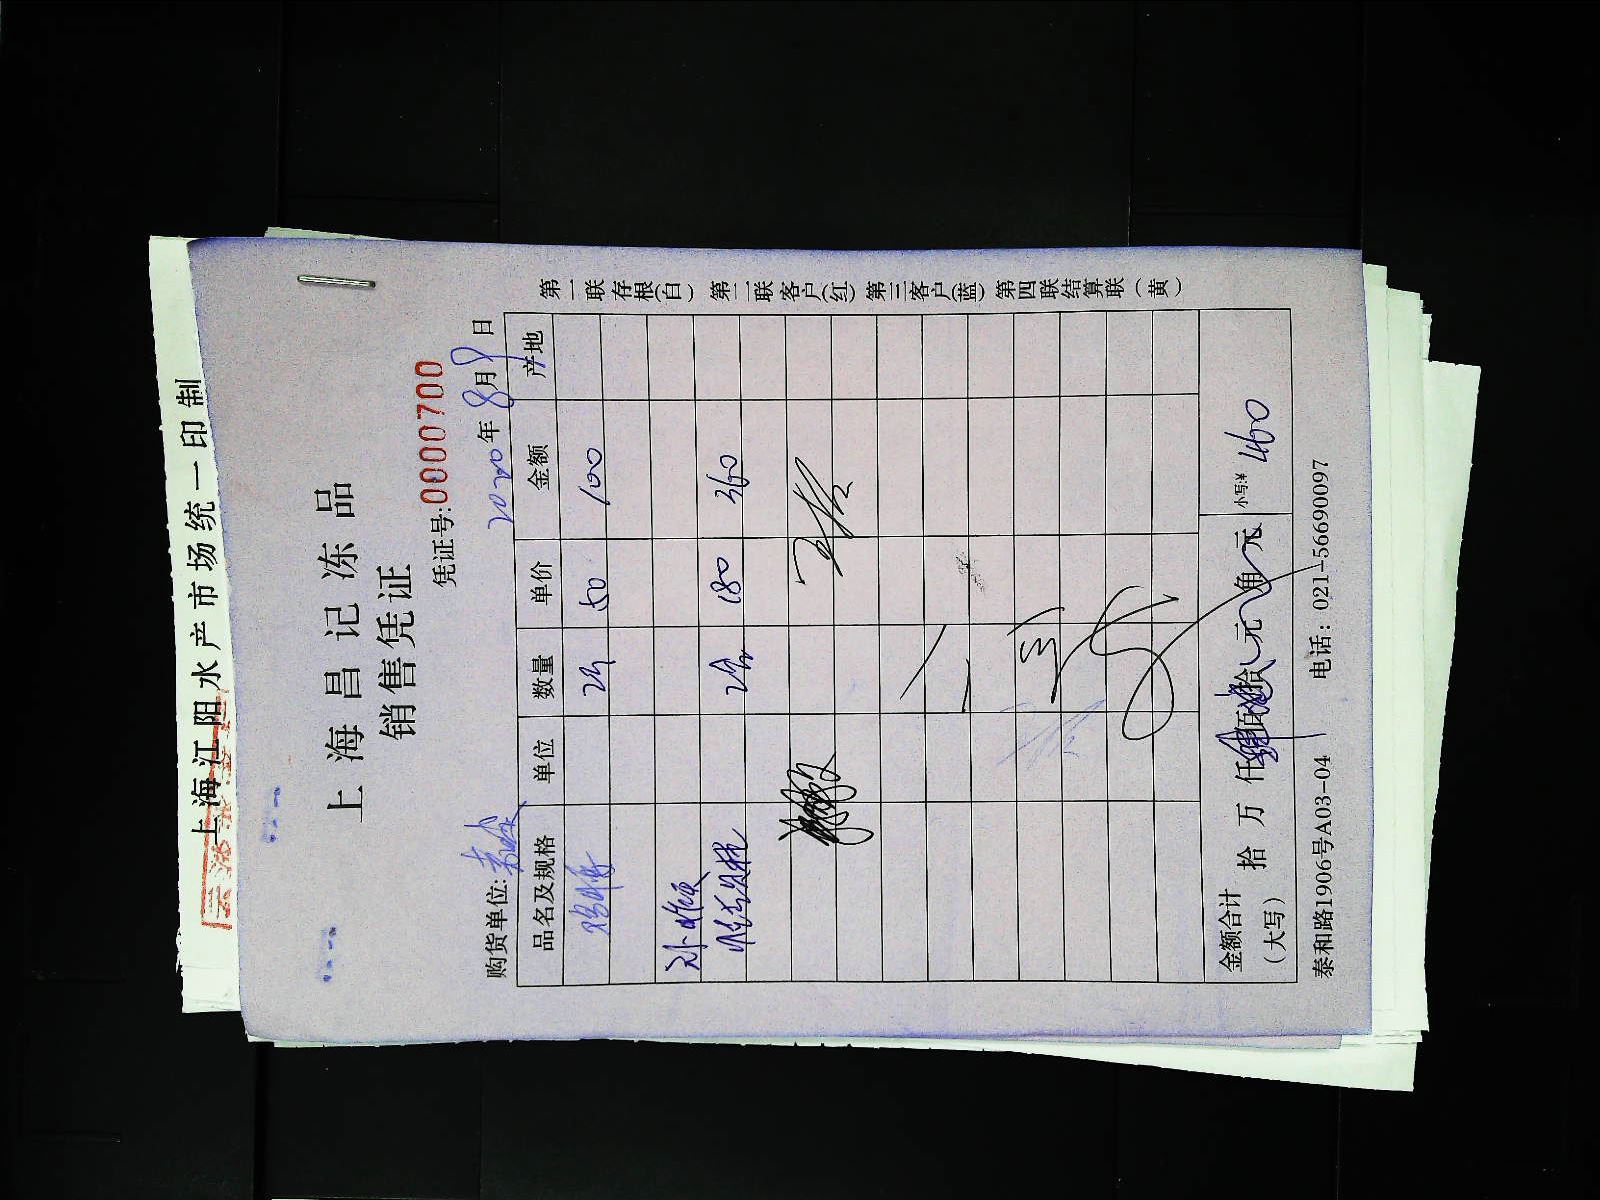 上海江阳水产市场统一印制
上海昌记冻品
销售凭证
凭证号:0000700
购货单位:
2020年8月9日
品名及规格 单位 数量 单价 金额 产地
50 100
180 360
金额合计 拾 万 仟 佰 拾 元 角 元 小写:¥ 460
(大写)
泰和路1906号A03-04 电话: 021-56690097
第一联存根(白) 第二联客户(红) 第三客户(蓝) 第四联结算联(黄)